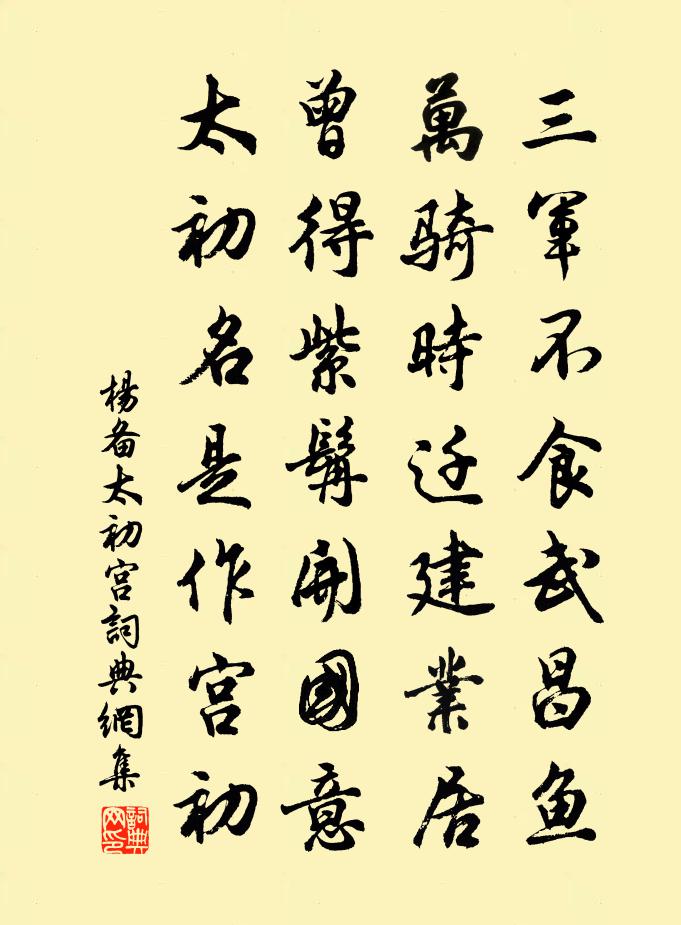 三軍不食武昌鱼
萬騎時迁建業居
曾得紫髯開國意
太初名是作宫初
楊备太初宫詞典網集
詞典网印